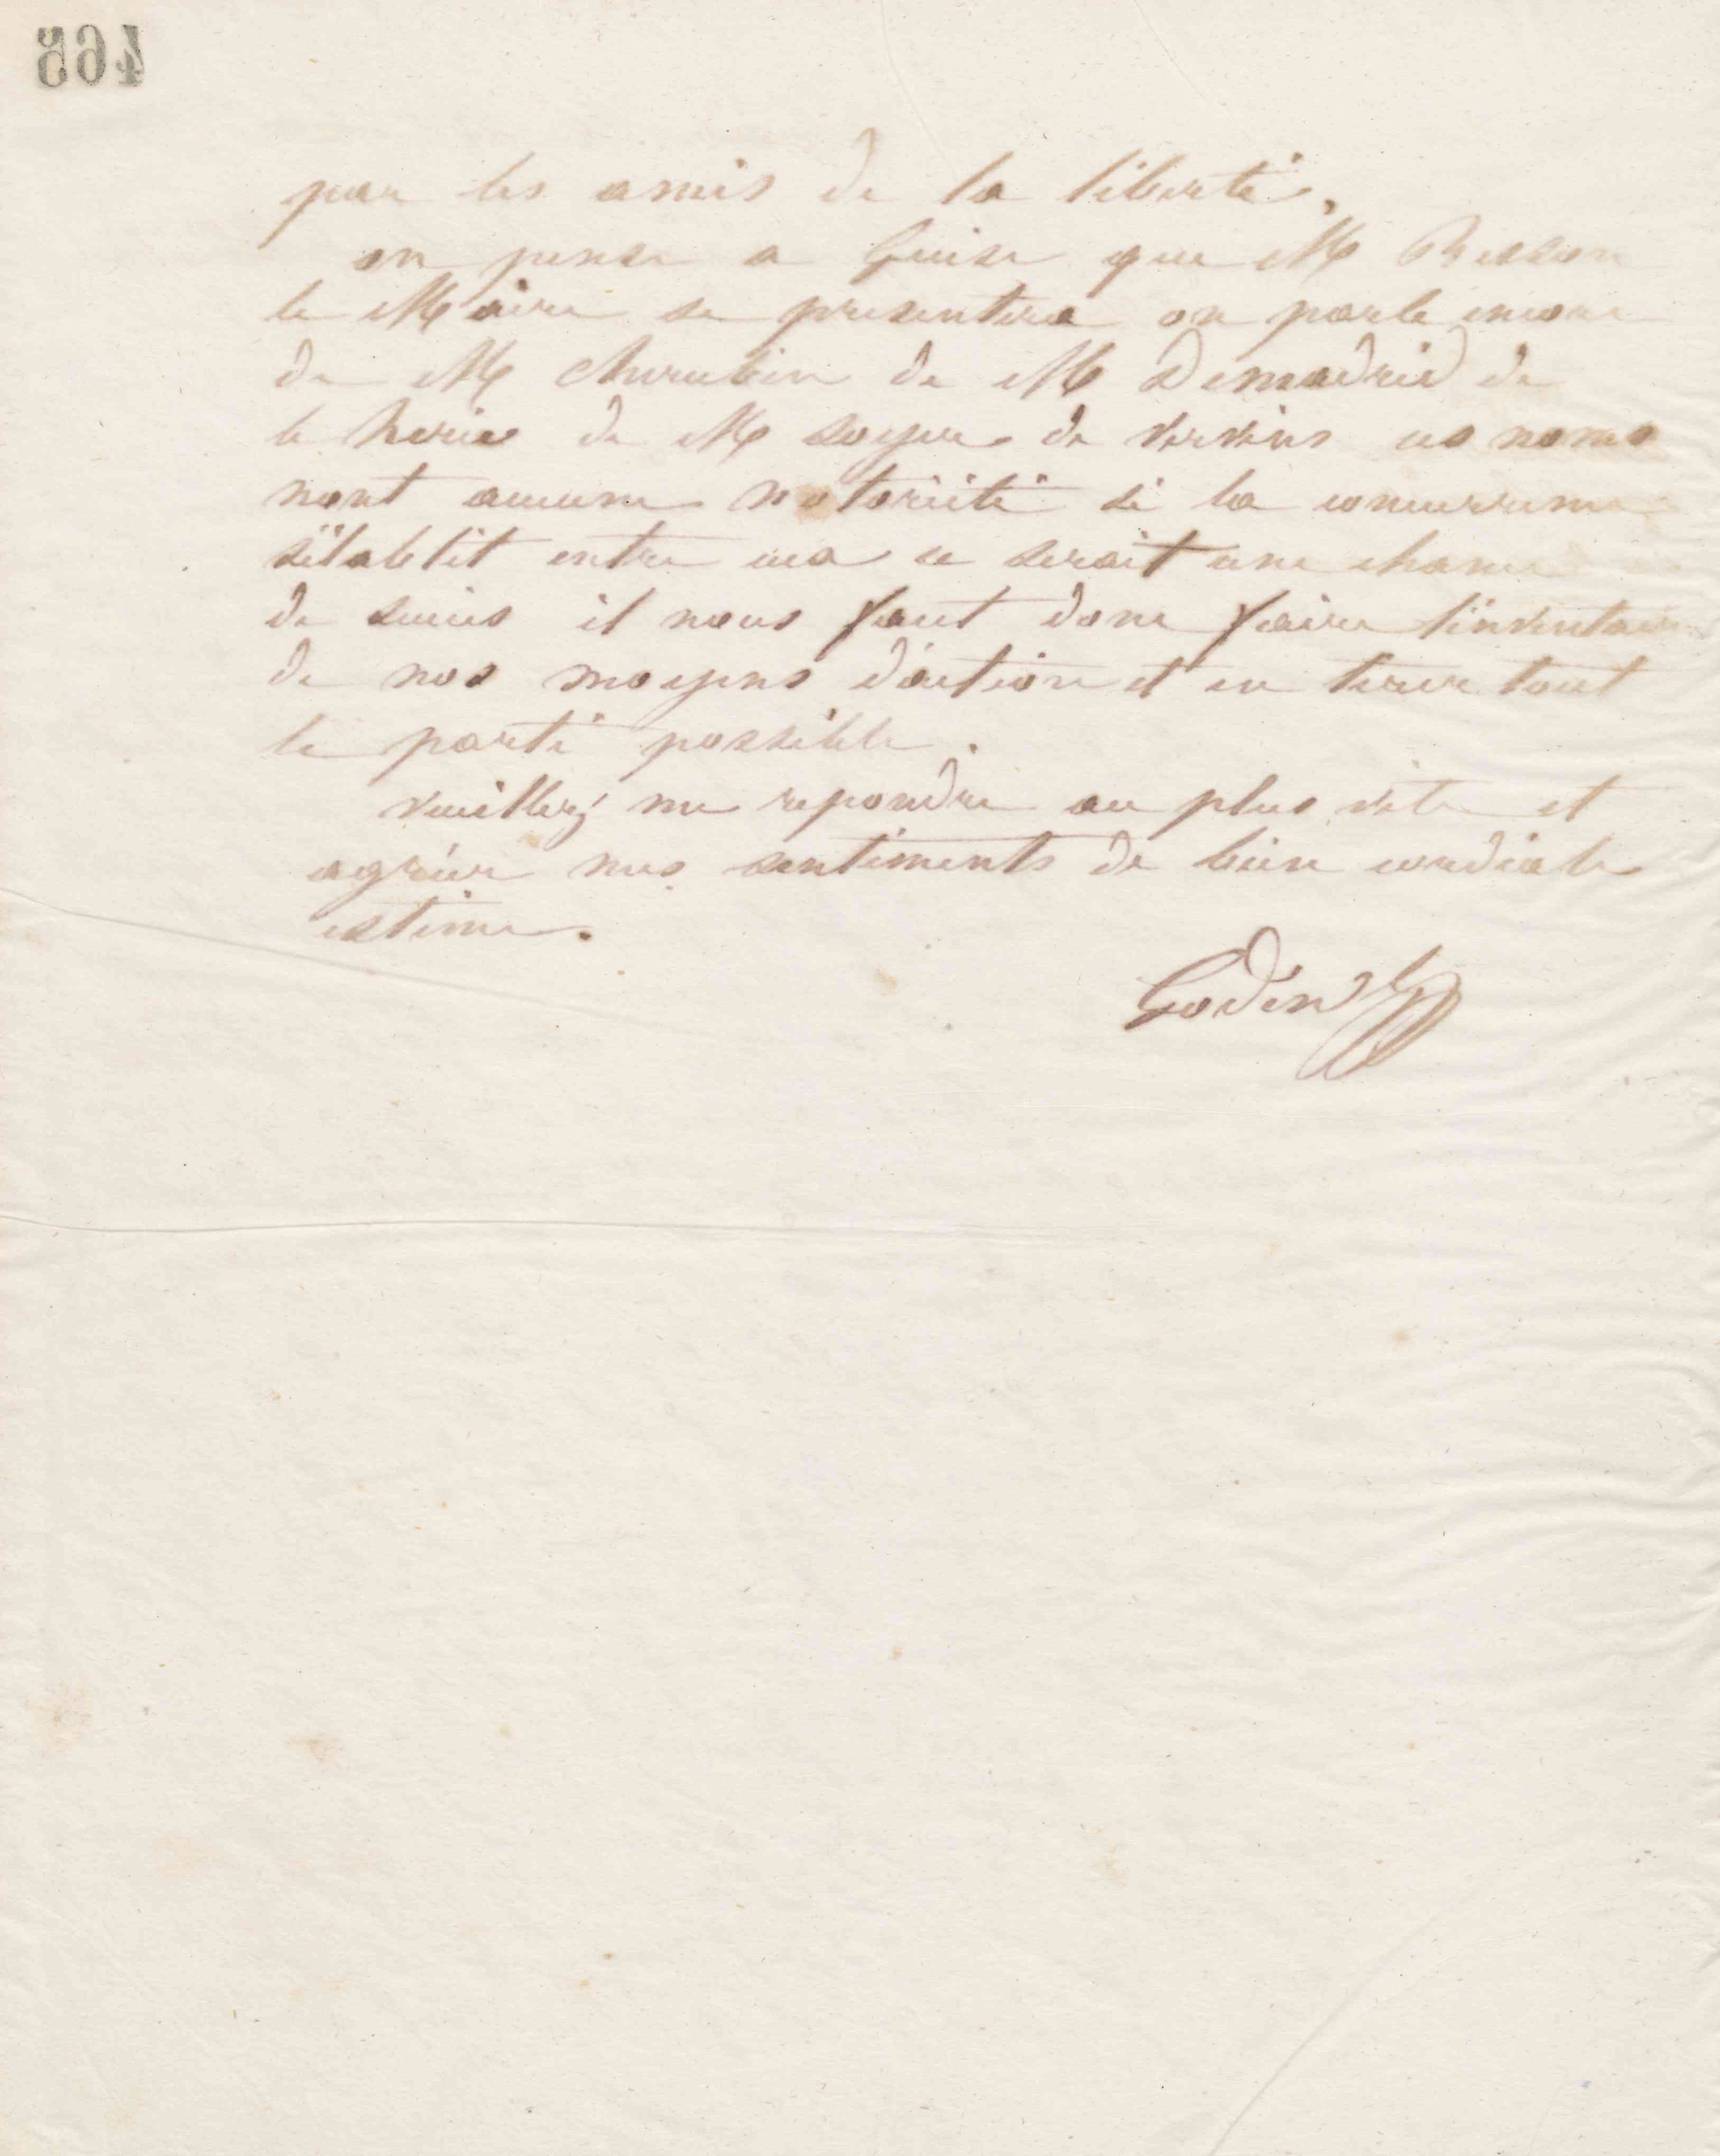 465
par les amis de la liberté.
on pense a Guise que M Besson
le Maire se presentera on parle encore
de M Cherubin de M Demadrid de
le herie de M soyer de Vervins ces noms
nont aucune notoriété si la concurrence
s'établit entre eux ce serait une chance
de succès il nous faut donc faire l'inventaire
de nos moyens d'action et en tirer tout
le parti possible.
veuillez me repondre au plus vite et
agréer mes sentiments de bien cordiale
estime.
Godin